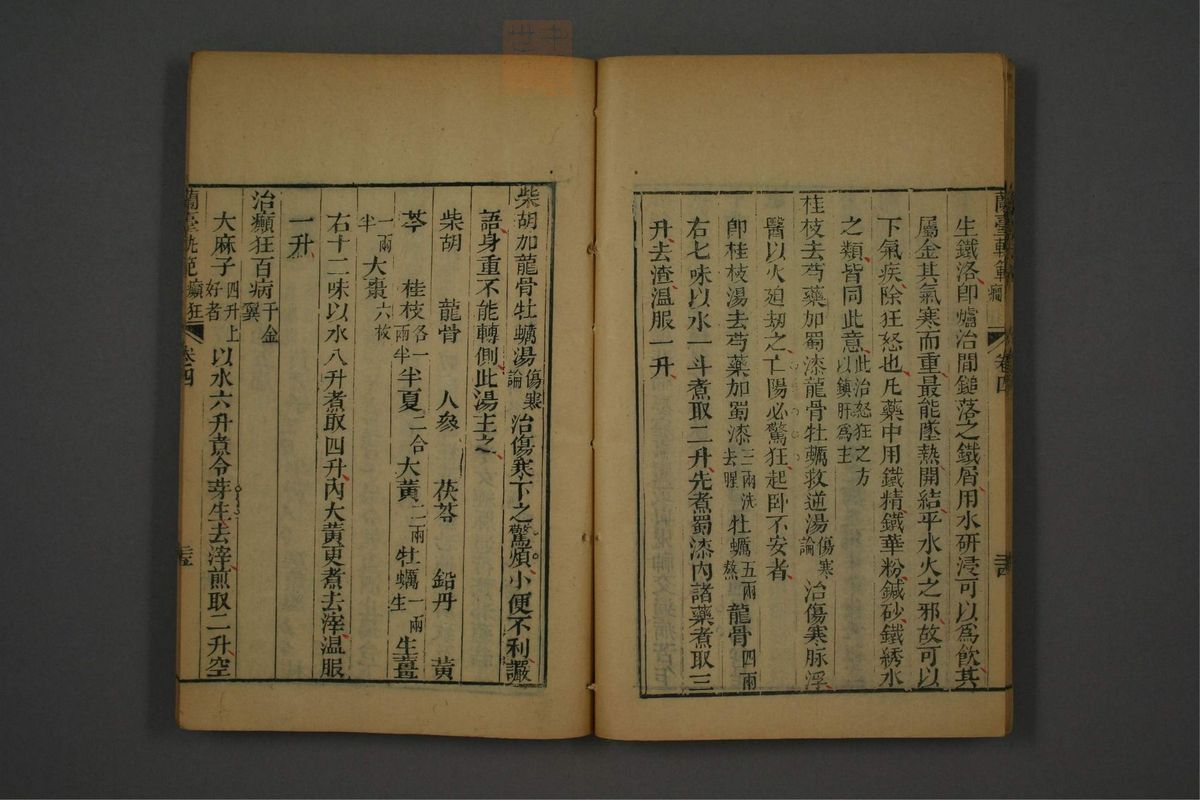 生鐵洛卽爐冶間鎚落之鐵屑用水研浸可以爲飮其
屬金其氣寒而重最能墜熱開結平水火之邪故可以
下氣疾除狂怒也凡藥中用鐵精鐵華粉鍼砂鐵綉水
之類皆同此意此治怒狂之方以鎮肝爲主
桂枝去芍藥加蜀漆龍骨牡蠣救逆湯傷寒論治傷寒脉浮
醫以火廹刼之亡陽必驚狂起卧不安者
卽桂枝湯去芍藥加蜀漆三兩洗去腥牡蠣五兩熬龍骨四兩
右七味以水一斗煮取二升先煮蜀漆內諸藥煮取三
升去渣温服一升
蘭臺軌範癲 卷四 三四
柴胡加龍骨牡蠣湯傷寒論治傷寒下之驚煩小便不利讝
語身重不能轉側此湯主之
柴胡 龍骨 人參 茯苓 鉛丹 黃
芩 桂枝各一兩半半夏二合大黃二兩牡蠣一兩生生薑
一兩半大棗六枚
右十二味以水八升煮取四升內大黃更煮去滓温服
一升
治癲狂百病千金翼
大麻子四升上好者以水六升煮令芽生去滓煎取二升空
蘭臺軌範癲狂 卷四 三五